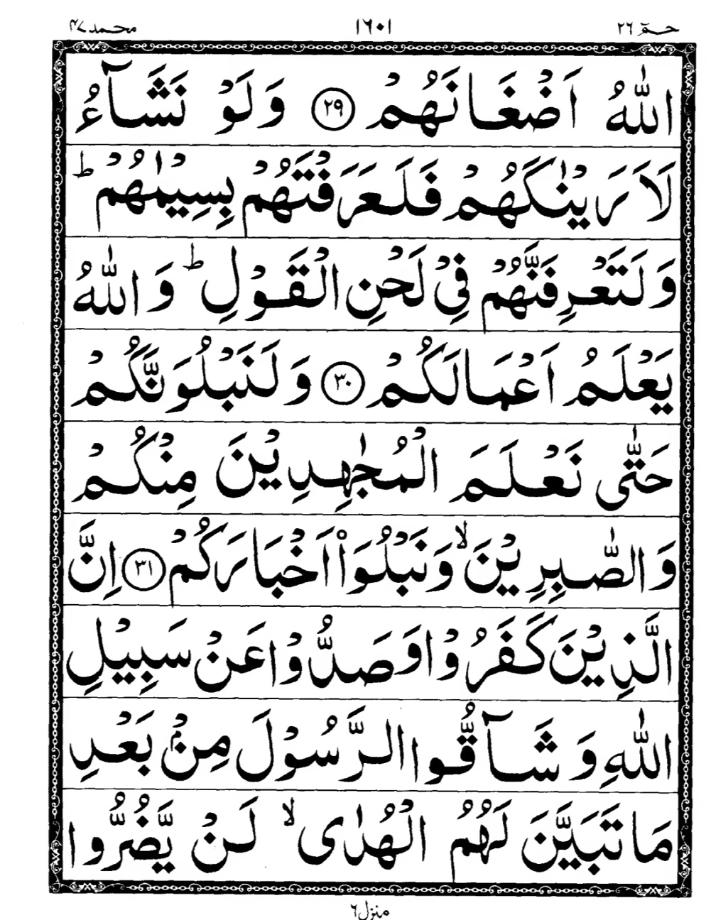 حٰمٓ ٢٦ ١٦٠١ محمد ٤٧
اللّٰهُ اَضْغَانَهُمْ ﴿٢٩﴾ وَلَوْ نَشَآءُ
لَاَرَيْنٰكَهُمْ فَلَعَرَفْتَهُمْ بِسِيْمٰهُمْ ؕ
وَلَتَعْرِفَنَّهُمْ فِيْ لَحْنِ الْقَوْلِ ؕ وَاللّٰهُ
يَعْلَمُ اَعْمَالَكُمْ ﴿٣٠﴾ وَلَنَبْلُوَنَّكُمْ
حَتّٰى نَعْلَمَ الْمُجٰهِدِيْنَ مِنْكُمْ
وَالصّٰبِرِيْنَ ۙ وَنَبْلُوَا۟ اَخْبَارَكُمْ ﴿٣١﴾ اِنَّ
الَّذِيْنَ كَفَرُوْا وَصَدُّوْا عَنْ سَبِيْلِ
اللّٰهِ وَشَآقُّوا الرَّسُوْلَ مِنْۢ بَعْدِ
مَا تَبَيَّنَ لَهُمُ الْهُدٰى ۙ لَنْ يَّضُرُّوا
منزل ٦